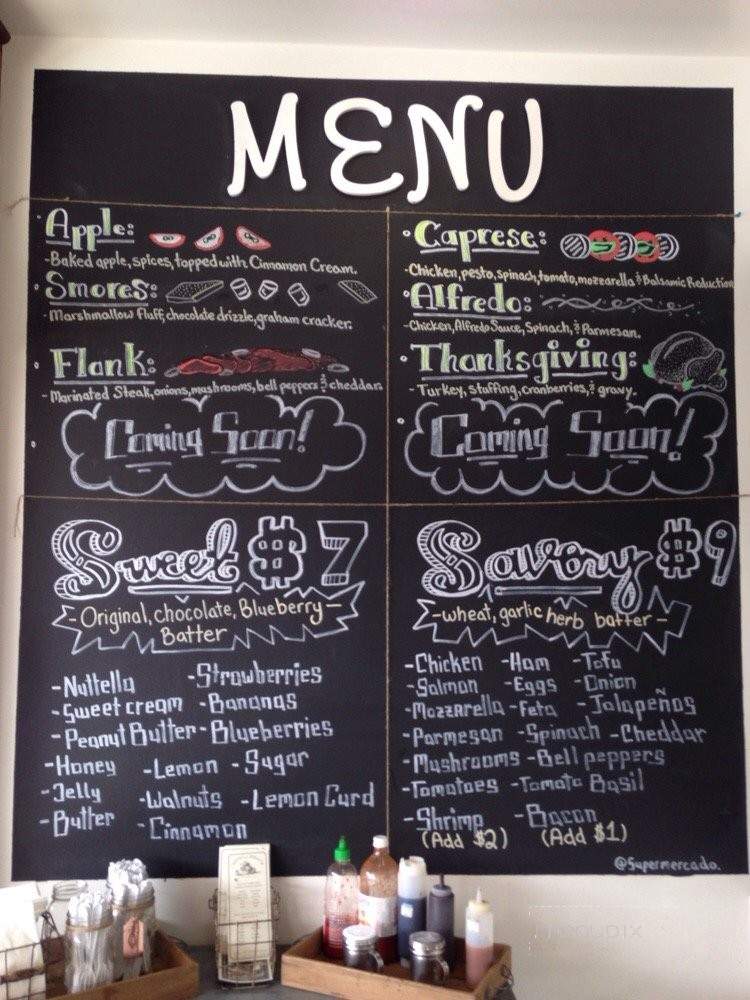 MENU
Apple:
-Baked apple, spices, topped with Cinnamon Cream.
Smores:
-Marshmallow fluff, chocolate drizzle, graham cracker.
Flank:
- Marinated Steak, onions, mushrooms, bell peppers & cheddar.
Coming Soon!
• Caprese:
-Chicken, pesto, spinach, tomato, mozzarella & Balsamic Reduction
• Alfredo:
-Chicken, Alfredo Sauce, Spinach, & Parmesan.
• Thanksgiving:
- Turkey, stuffing, cranberries, & gravy.
Coming Soon!
Sweet $7
- Original, chocolate, Blueberry -
Batter
-Nuttella -Strawberries
-Sweet cream -Bananas
-Peanut Butter -Blueberries
-Honey -Lemon -Sugar
-Jelly -Walnuts -Lemon Curd
-Butter -Cinnamon
Savory $9
-wheat, garlic herb batter-
-Chicken -Ham -Tofu
-Salmon -Eggs -Onion
-Mozzarella -Feta -Jalapeños
-Parmesan -Spinach -Cheddar
-Mushrooms -Bell peppers
-Tomatoes -Tomato Basil
-Shrimp -Bacon
(Add $2) (Add $1)
@Supermercado.